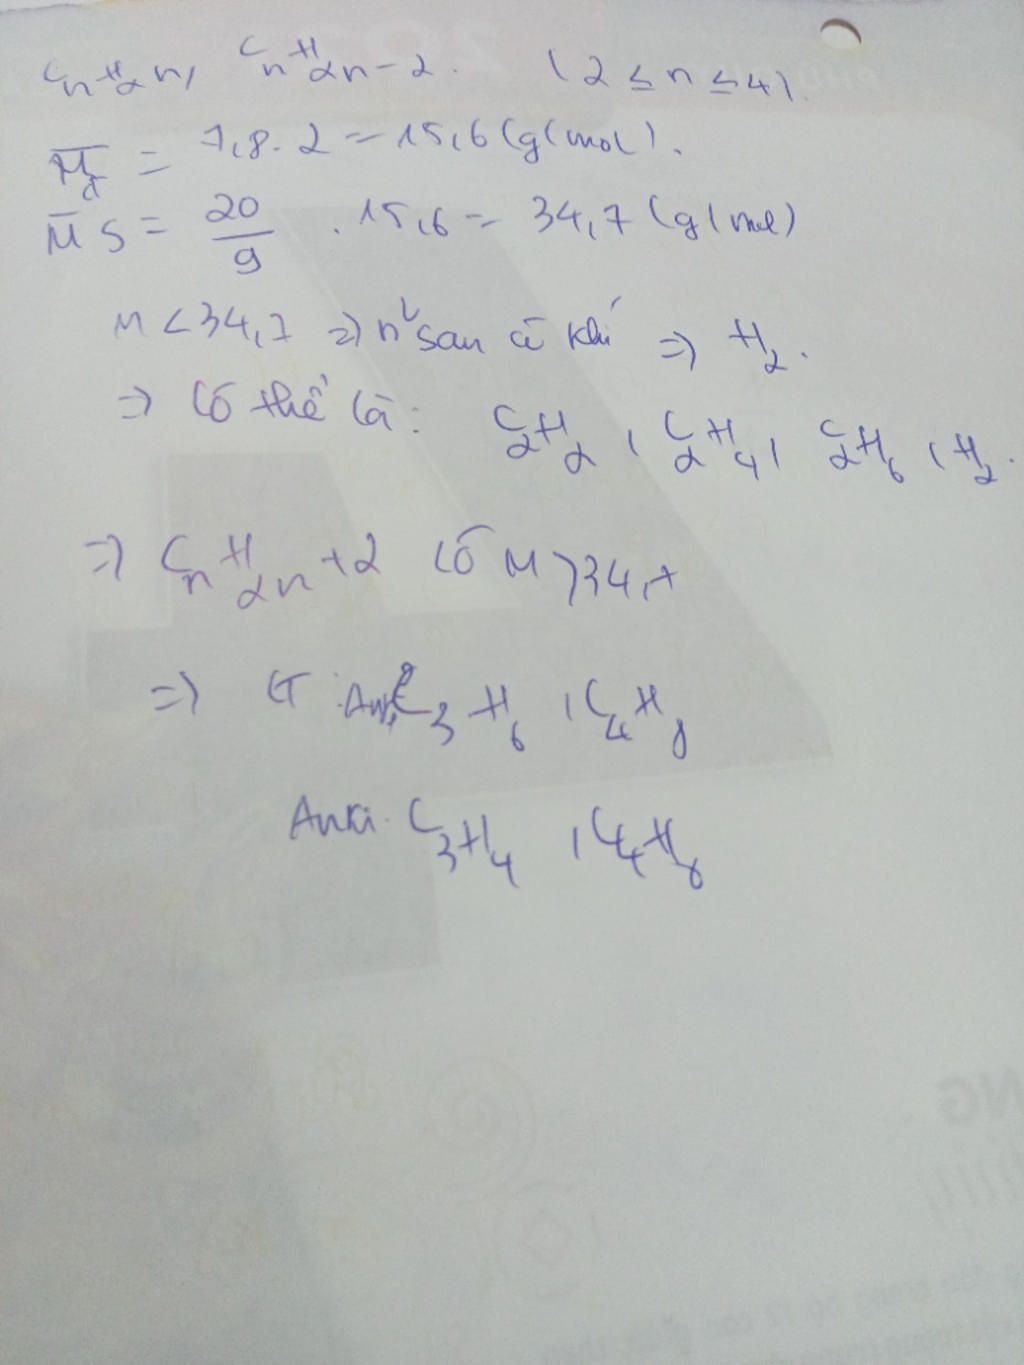 CnH2n, CnH2n-2. (2 ≤ n ≤ 4).
M̅t = 7,8. 2 = 15,6 (g/mol).
M̅s = 20/9 . 15,6 = 34,7 (g/mol)
M < 34,7 => sau có khí => H2.
=> Có thể là: C2H2, C2H4, C2H6, H2.
=> CnH2n+2 có M > 34,7
=> CT C3H6, C4H8
Anki. C3H4, C4H6
NG